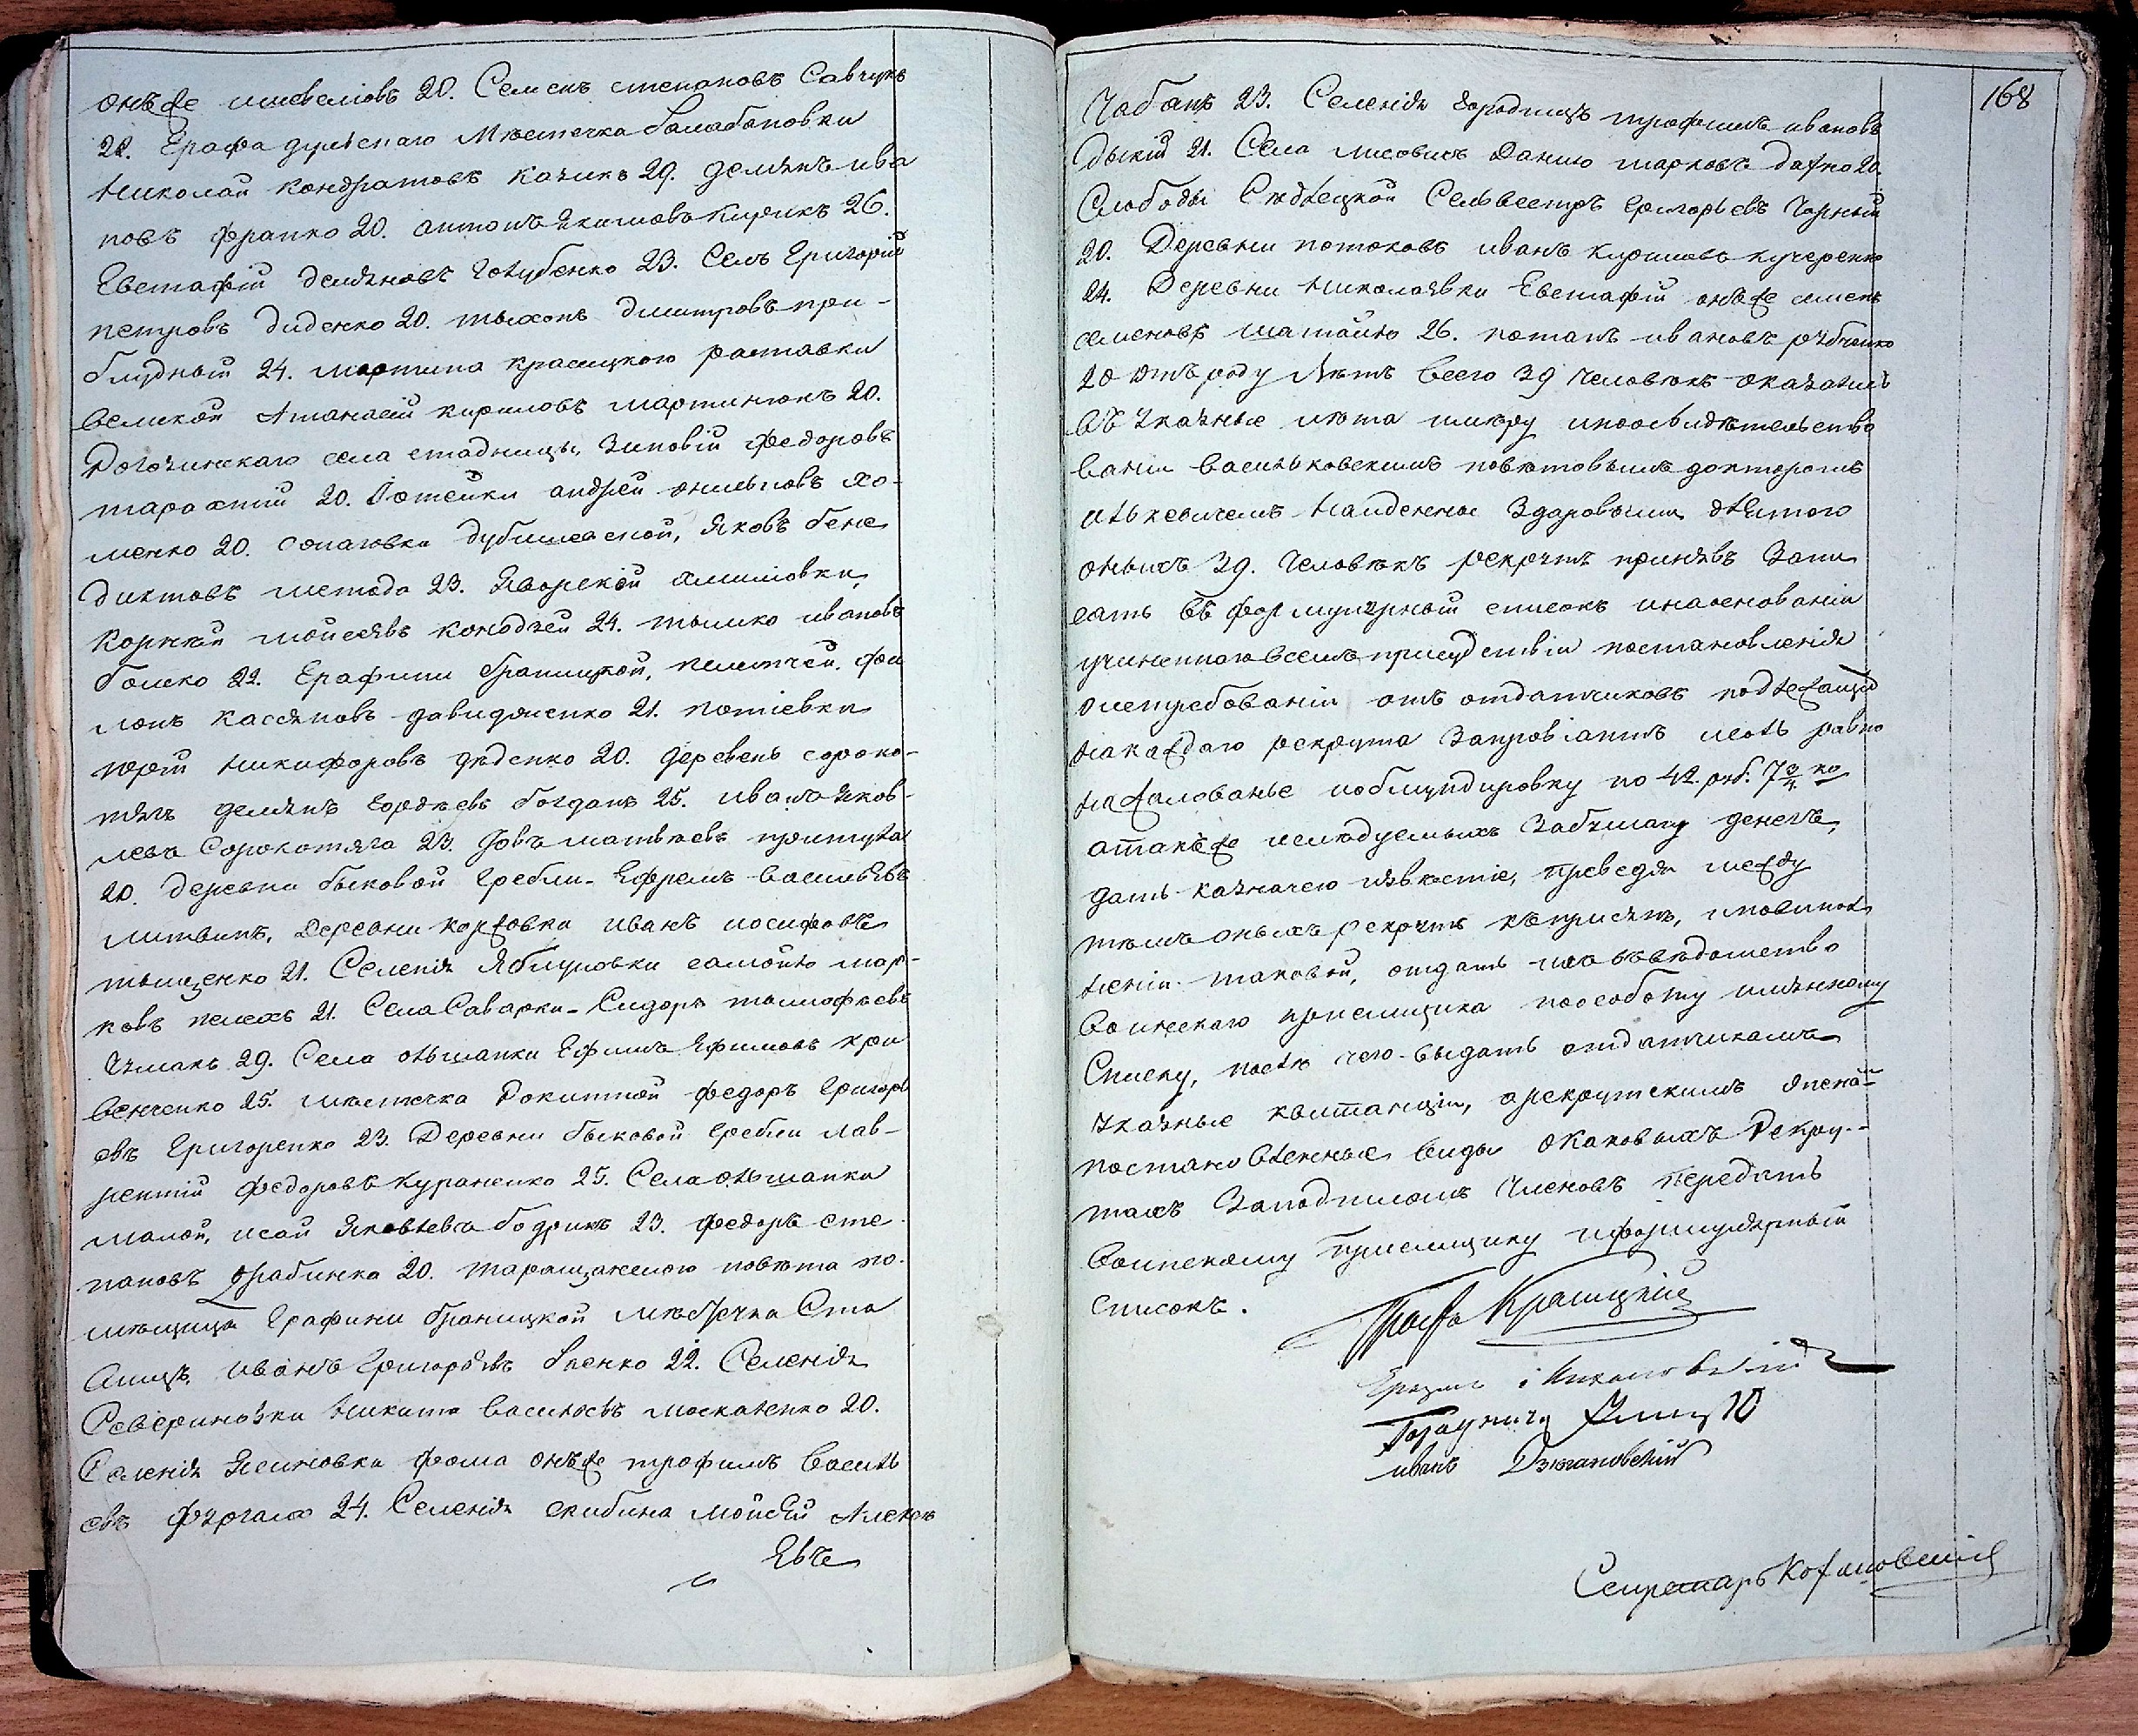 онъ же шевеліовъ 20. Семенъ степановъ Савчукъ
22. Графа дулскаго Мѣстечка балабановки
Николай Кондратовъ качикъ 29. демянъ ива
новъ франко 20. антонъ Якимовъ Кирикъ 26.
Евстафій демяновъ голубенко 23. Селъ Григорій
петровъ диденко 20. тыхонъ дмитровъ при-
блудный 24. мартина красицкого раставки
великой Атанасій кириловъ мартинюкъ 20.
села стадницы, Зиновій федоровъ
20. андрей хо-
менко 20. дубищеаской, Яковъ бене
диктовъ метода 23. Яворской
Корній мойсеявъ колодзей 24. тымко ивановъ
бойко 22. Графини браницкой, фи
лонъ касяновъ давидченко 21. потіевки
юрій никифоровъ диденко 20. деревень сороко-
тягъ демянъ гордѣевъ богданъ 25. иванъ яков-
левъ Сорокотяга 23. матвѣевъ притула
20. деревни быковой гребли Ефремъ васильевъ
литвинъ, деревни коржовки иванъ иосифовъ
тыщенко 21. Селенія Яблуновки самойло мар-
ковъ пелехъ 21. Села Саварки Сидоръ тымофѣевъ
Чумакъ 29. Села ольшанки Ефимъ Ефимовъ кри
венченко 25. мѣстечка Рокитной федоръ Григорь
евъ Григоренко 23. Деревни быковой гребли лав-
рентій федоровъ Кураненко 25. Села ольшанки
малой, исай Яковлевъ бодрикъ 23. федоръ сте
пановъ грабинка 20. таращанского повѣта по-
мѣщицы Графини браницкой мѣстечка Ста
вищъ, иванъ Григорьевъ баенко 22. Селенія
Севериновки Никита васильевъ москаленко 20.
Селенія Ясиновки фома онъ же трофимъ василь
евъ фургала 24. Селенія скибина мойсей Алексѣ
Евъ
168
Чабанъ 23. Селенія Городищъ трофимъ ивановъ
дыкій 21. Села лисовичъ данило марковъ дахно 20.
Слободы Сельвестръ Григорьевъ Чорный
20. Деревни потоковъ иванъ кириловъ кучеренко
24. Деревни Николаявки Евстафій онъ же семенъ
семеновъ шатайло 26. потапъ ивановъ рубченко
20 отъ роду лѣтъ всего 39 человѣкъ оказались
въ указные лѣта и мѣру и по освидѣтельство
ваніи васильковскимъ повѣтовымъ докторомъ
найдены здоровыми, для того
оныхъ 39. человѣкъ рекрутъ принявъ Запи
сать въ формулярный списокъ и на основаніи
учиненного всемъ присудствіи постановленія
о истребованіи отъ отдатчиковъ подлежащихъ
на каждаго рекрута За провіантъ соль равно
на жалованье и обмундировку по 42. руб. 7 3/4 ко
а также и слѣдуемыхъ За бумагу денегъ,
дать казначею извѣстіе, Преведя между
тѣмъ оныхъ рекрутъ къ присягѣ, и по выпол
неніи таковой, отдать ихъ въ вѣдомство
воинскаго пріемщика по особому имянному
Списку, послѣ чего выдать отдатчикамъ
указные квитанціи, а рекрутскимъ
постановленные виды о каковыхъ Рекру-
тахъ За подписомъ Членовъ передать
воинскому пріемщику и формулярный
Списокъ.
Графъ Красицкій
Городничи
иванъ
Секретарь